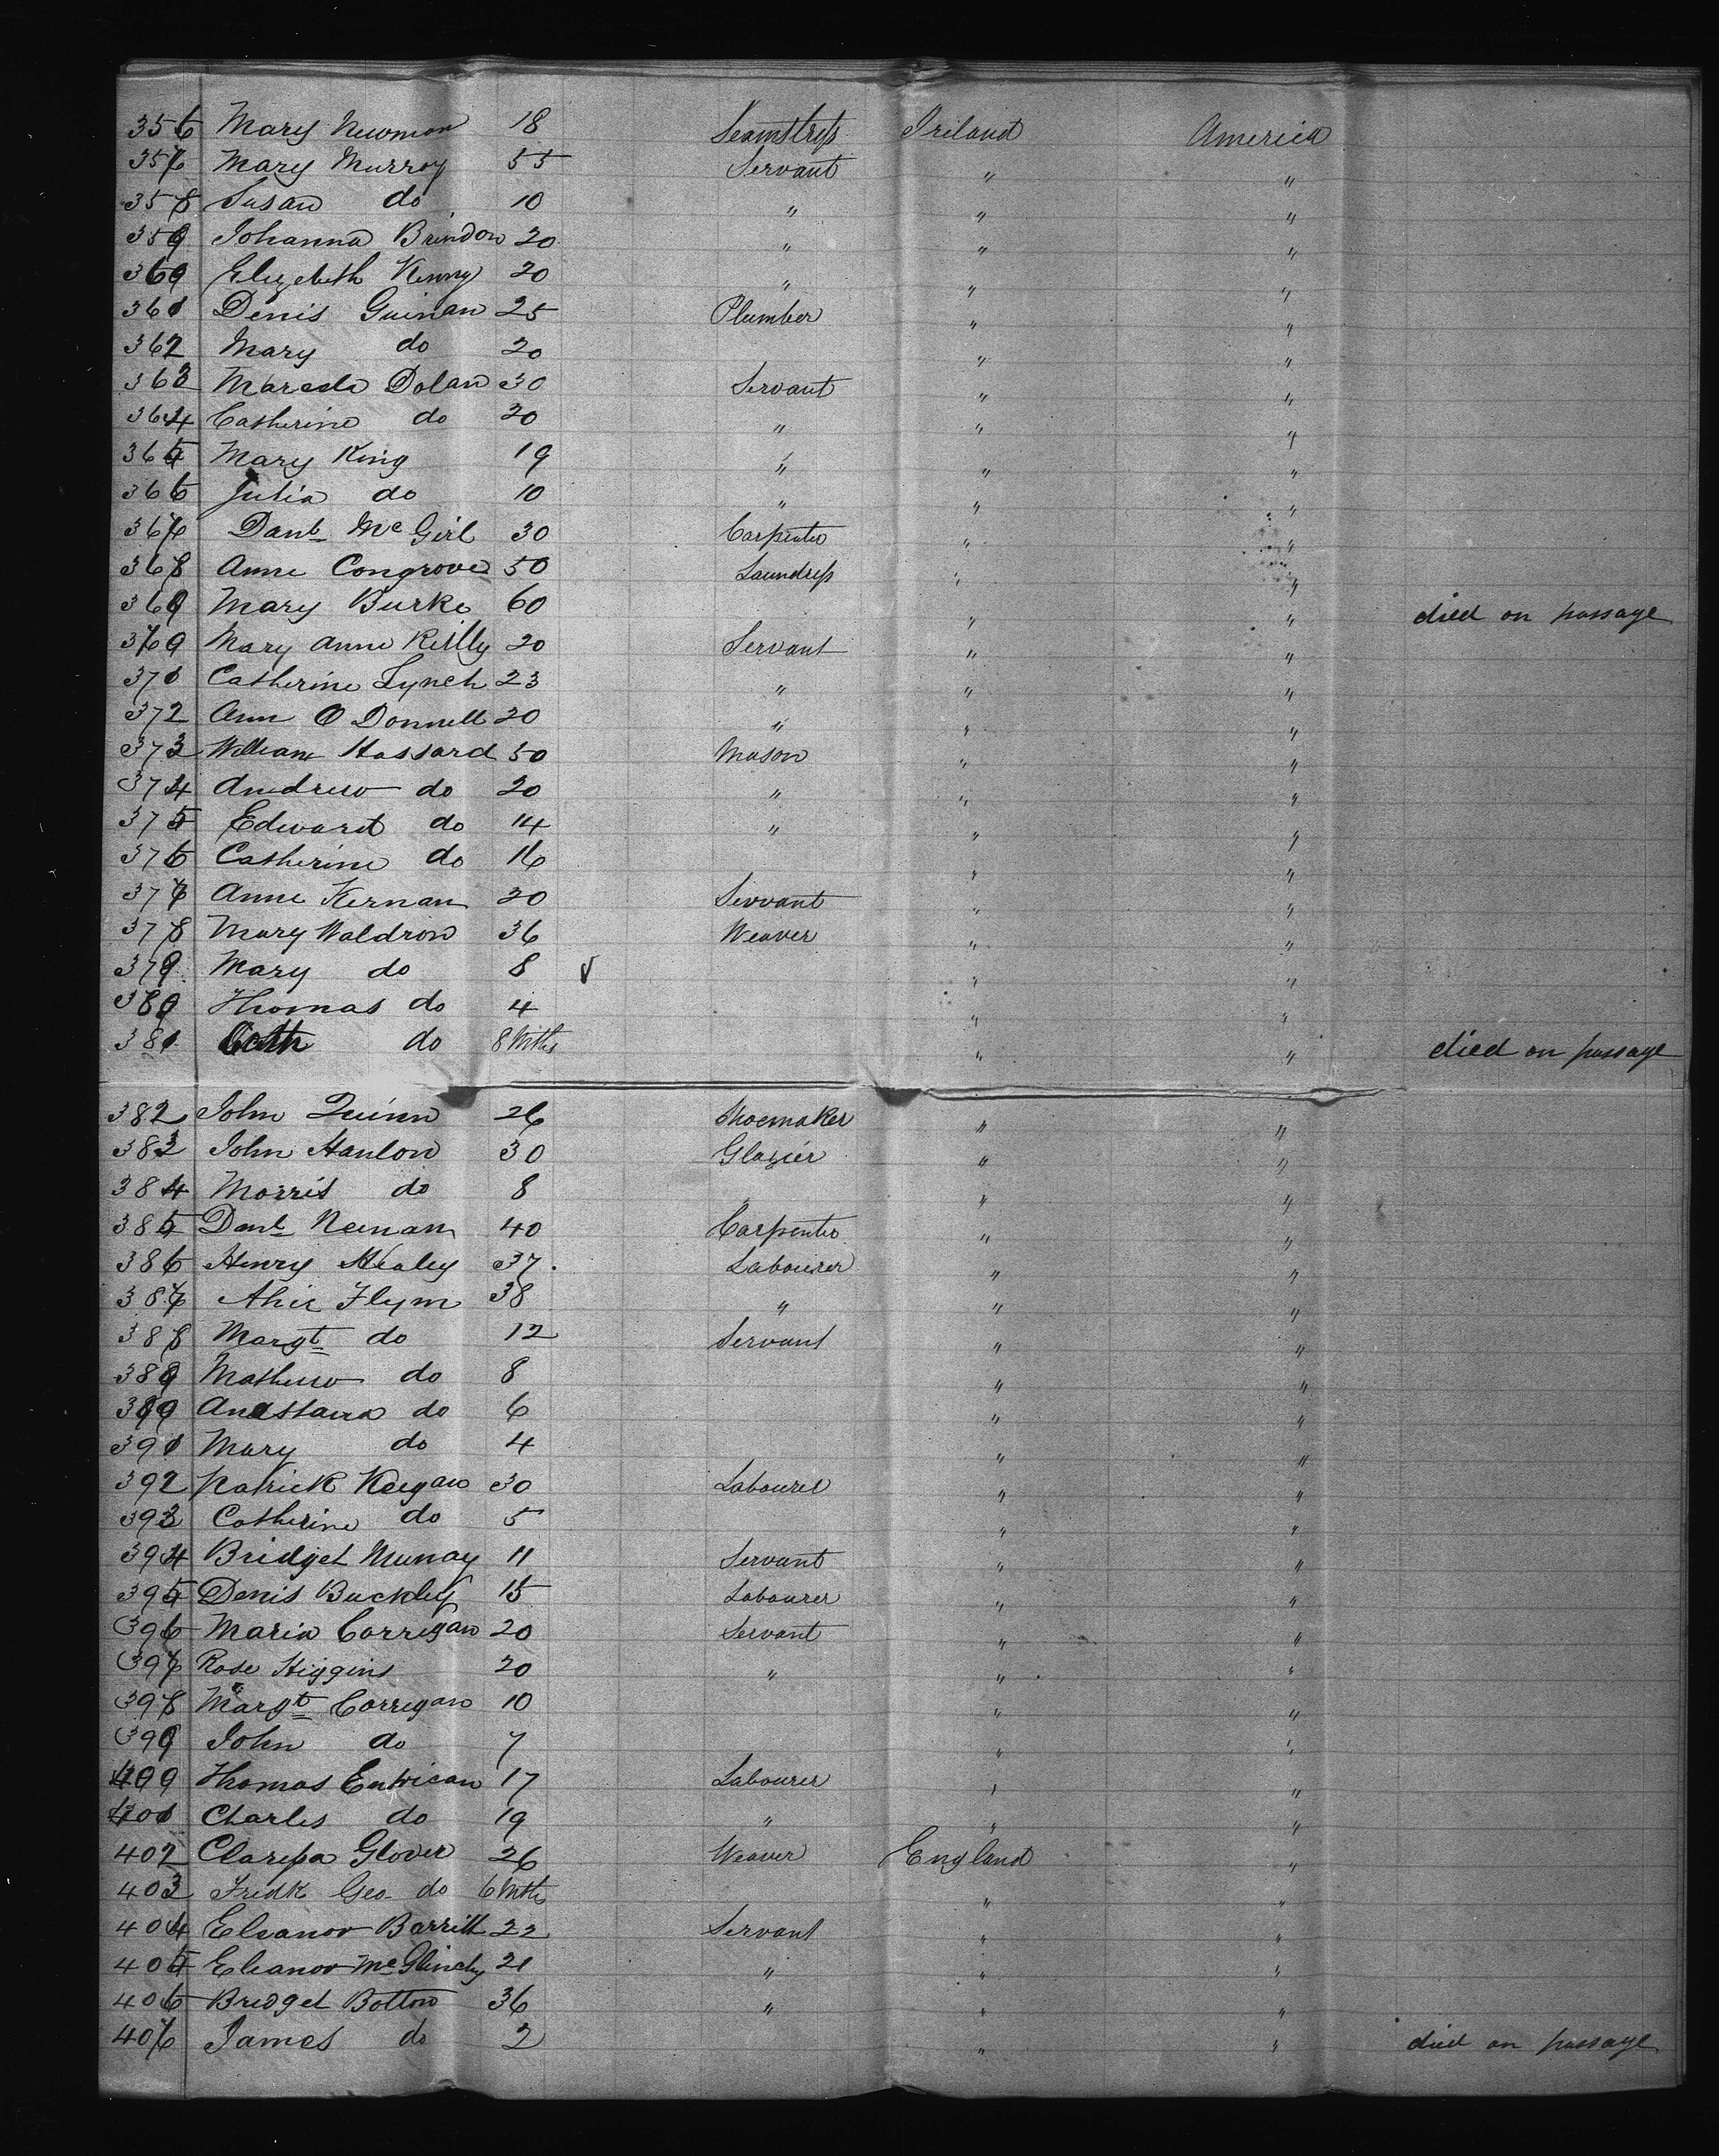 356 Mary Newman 18 Seamstress Ireland America
357 Mary Murray 55 Servant " "
358 Susan do 10 " " "
359 Johanna Brindon 20 " " "
360 Elizebeth Kenny 20 " " "
361 Denis Guinan 25 Plumber " "
362 Mary do 20 " "
363 Dolan 30 Servant " "
364 Catherine do 20 " " "
365 Mary King 19 " " "
366 Julia do 10 " " "
367 Danl Mc Girl 30 Carpenter " "
368 Anne Congrove 50 Laundress " "
369 Mary Burke 60 " " died on passage
370 Mary Anne Reilly 20 Servant " "
371 Catherine Lynch 23 " " "
372 Ann O Donnell 20 " " "
373 William Hassard 50 Mason " "
374 Andrew do 20 " " "
375 Edward do 14 " " "
376 Catherine do 16 " "
377 Anne Kernan 20 Servant " "
378 Mary Waldron 36 Weaver " "
379 Mary do 8 " "
380 Thomas do 4 " "
381 Cath do 8 Mths " " died on passage
382 John Quinn 26 Shoemaker " "
383 John Hanlon 30 Glazier " "
384 Morris do 8 " " "
385 Danl Neenan 40 Carpenter " "
386 Henry Healey 37 Labourer " "
387 Flynn 38 " " "
388 Margt do 12 Servant " "
389 Mathew do 8 " "
390 Anastasia do 6 " "
391 Mary do 4 " "
392 Patrick Keegan 30 Labourer " "
393 Catherine do 5 " "
394 Bridget Murray 11 Servant " "
395 Denis Buckley 15 Labourer " "
396 Maria Corrigan 20 Servant " "
397 Rose Higgins 20 " " "
398 Margt Corrigan 10 " "
399 John do 7 " "
400 Thomas Entrican 17 Labourer " "
401 Charles do 19 " " "
402 Clarissa Glover 26 Weaver England "
403 Fredk Geo do 6 Mths " "
404 Eleanor Barritt 22 Servant " "
405 Eleanor McGlinchy 21 " " "
406 Bridget Botton 36 " " "
407 James do 2 " " died on passage